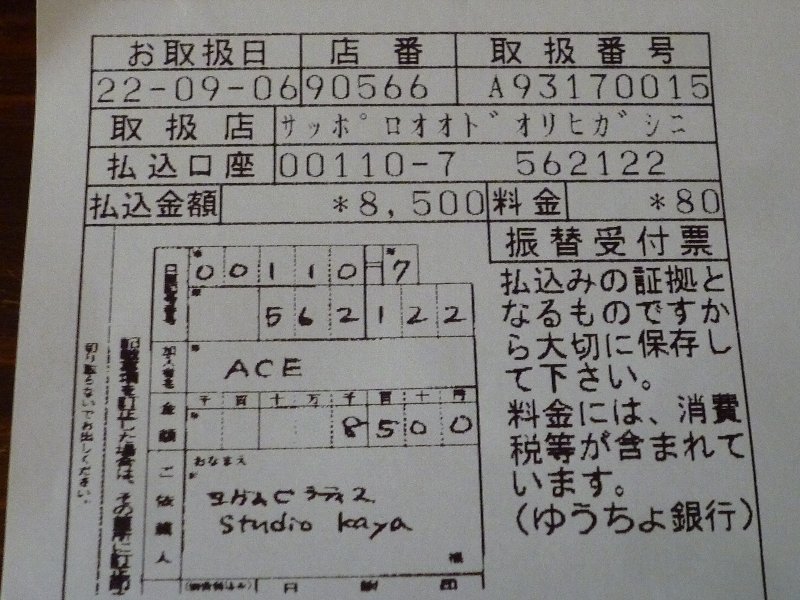 お取扱日 店番 取扱番号
22-09-06 90566 A93170015
取扱店 サッポロオオドオリヒガシニ
払込口座 00110-7 562122
払込金額 *8,500 料金 *80
振替受付票
払込みの証拠と
なるものですか
ら大切に保存し
て下さい。
料金には、消費
税等が含まれて
います。
(ゆうちょ銀行)
00110-7
562122
加入者名 ACE
金額 千百十万千百十円
8500
ご依頼人 おなまえ
ヨガ&ピラティス
studio kaya
様
切り取らないでお出しください。